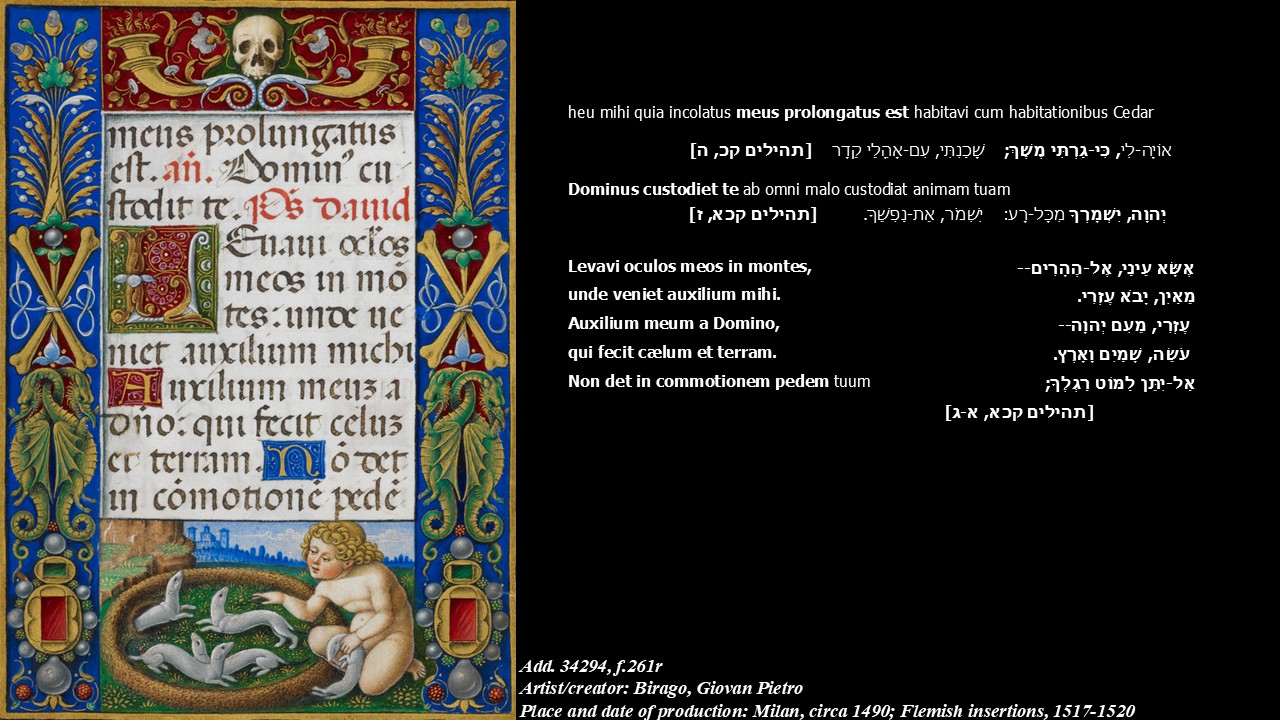 meus prolungatus
est. añ. Domin⁹ cu
stodit te. p̄s dauid
LEuaui oc̄l̓os
meos in mō
tes: unde ue
niet auxilium michi
Auxilium meuz a
dño: qui fecit celuz
et terram. Nō det
in cōmotionē pedē
heu mihi quia incolatus meus prolongatus est habitavi cum habitationibus Cedar
אוֹיָה-לִי, כִּי-גַרְתִּי מֶשֶׁךְ; שָׁכַנְתִּי, עִם-אָהֳלֵי קֵדָר [תהילים קכ, ה]
Dominus custodiet te ab omni malo custodiat animam tuam
יְהוָה, יִשְׁמָרְךָ מִכָּל-רָע: יִשְׁמֹר, אֶת-נַפְשֶׁךָ. [תהילים קכא, ז]
Levavi oculos meos in montes,
unde veniet auxilium mihi.
Auxilium meum a Domino,
qui fecit cælum et terram.
Non det in commotionem pedem tuum
אֶשָּׂא עֵינַי, אֶל-הֶהָרִים--
מֵאַיִן, יָבֹא עֶזְרִי.
עֶזְרִי, מֵעִם יְהוָה--
עֹשֵׂה, שָׁמַיִם וָאָרֶץ.
אַל-יִתֵּן לַמּוֹט רַגְלֶךָ;
[תהילים קכא, א-ג]
Add. 34294, f.261r
Artist/creator: Birago, Giovan Pietro
Place and date of production: Milan, circa 1490; Flemish insertions, 1517-1520